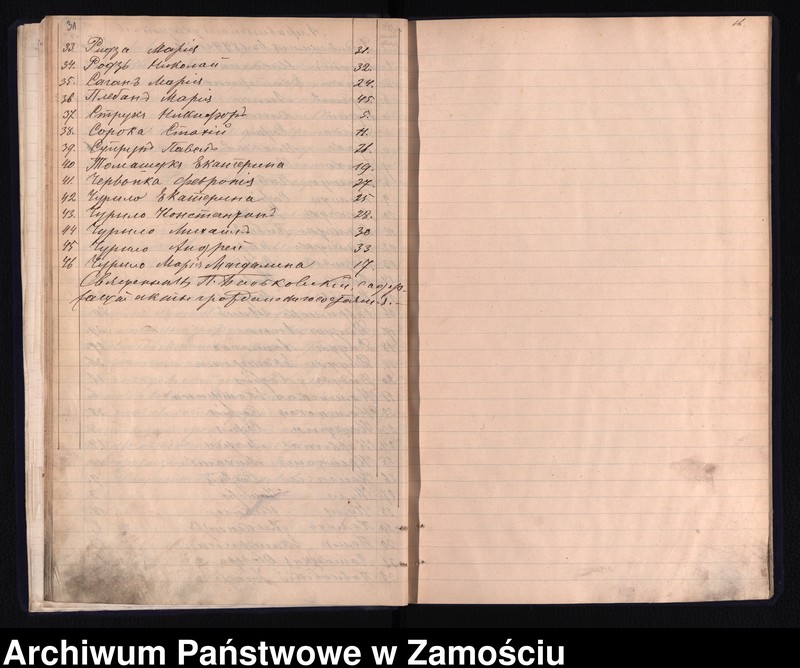 31
16.
33. Ридза Марія 21.
34. Родзь Николай 32.
35. Саганъ Марія 24.
36 Плебанъ Марія 45.
37. Струкъ Никифоръ 5.
38. Сорока Стахій 11.
39. Супрунъ Павелъ 26.
40 Томащукъ Екатерина 19.
41. Червонка Февронія 27.
42 Чурило Екатерина 25
43. Чурило Константинъ 28.
44 Чурило Михаилъ 30
45 Чурило Андрей 33
46 Чурило Марія Магдалина 17.
Священникъ П.
акты гражданскаго состоянія.
Archiwum Państwowe w Zamościu